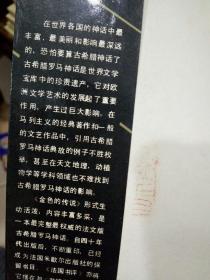 在世界各国的神话中最
丰富、最美丽和影响最深远
的，恐怕要算古希腊神话了
古希腊罗马神话是世界文学
宝库中的珍贵遗产，它对欧
洲文学艺术的发展起了重要
作用，产生过巨大影响。在
马列主义的经典著作和一般
的文艺作品中，引用古希腊
罗马神话典故的例子不胜枚
举，甚至在天文地理、动植
物学等学科领域也不难找到
古希腊罗马神话的影响。
《金色的传说》形式生
动活泼，内容丰富多采，是
一本最完整最权威的法文版
古希腊罗马神话。自四十年
代出版后，不断重印，已经
成为法国米歇尔出版社的保
留书目。《法国书评》亦将